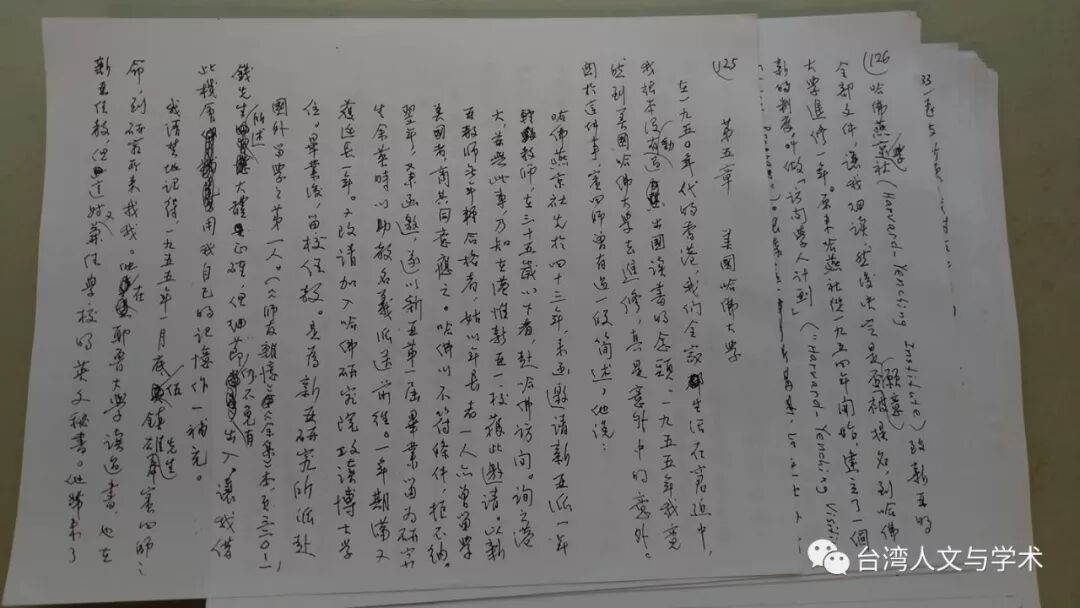 (125) 第五章 美國哈佛大學
在一九五〇年代的香港,我們全家生活在窘迫中,
我根本沒有動過出國讀書的念頭。一九五五年我竟
然到美國哈佛大學去進修,真是意外中的意外。
關於這件事,賓四師曾有過一段簡述,他說:
哈佛燕京社先於四十三年,來函邀請新亞派一年
輕教師,在三十五歲以下者,赴哈佛訪問。詢之港
大,并無此事,乃知在港惟新亞一校獲此邀請。以新
亞教師無年輕合格者,姑以年長者一人亦曾留學
美國者,商其同意應之。哈佛以不符條件,拒不納。
翌年,又來函邀,遂以新亞第一屆畢業留為研究
生余英時以助教名義派送前往。一年期滿又
獲延長一年。又改請加入哈佛研究院攻讀博士學
位。畢業後,留校任教。是為新亞研究所派赴
國外留學之第一人。(《師友雜憶》,《全集》本,頁三〇一)
錢先生所述大體正確,但細節仍不免有出入。讓我借
此機會用我自己的記憶作一補充。
我清楚地記得一九五五年一月底,伍鎮雄先生奉賓四師之
命,到研究所來找我。他在耶魯大學讀過書,也在
新亞任教,但又兼任學校的英文秘書。他帶來了
(126) 哈佛燕京學社(Harvard-Yenching Institute)致新亞的
全部文件,讓我細讀,然後決定是否願意被提名到哈佛
大學進修一年。原來哈燕社從一九五四年開始,建立了一個
新的制度,叫做「訪問學人計劃」("Harvard-Yenching Visiti
台湾人文与学术